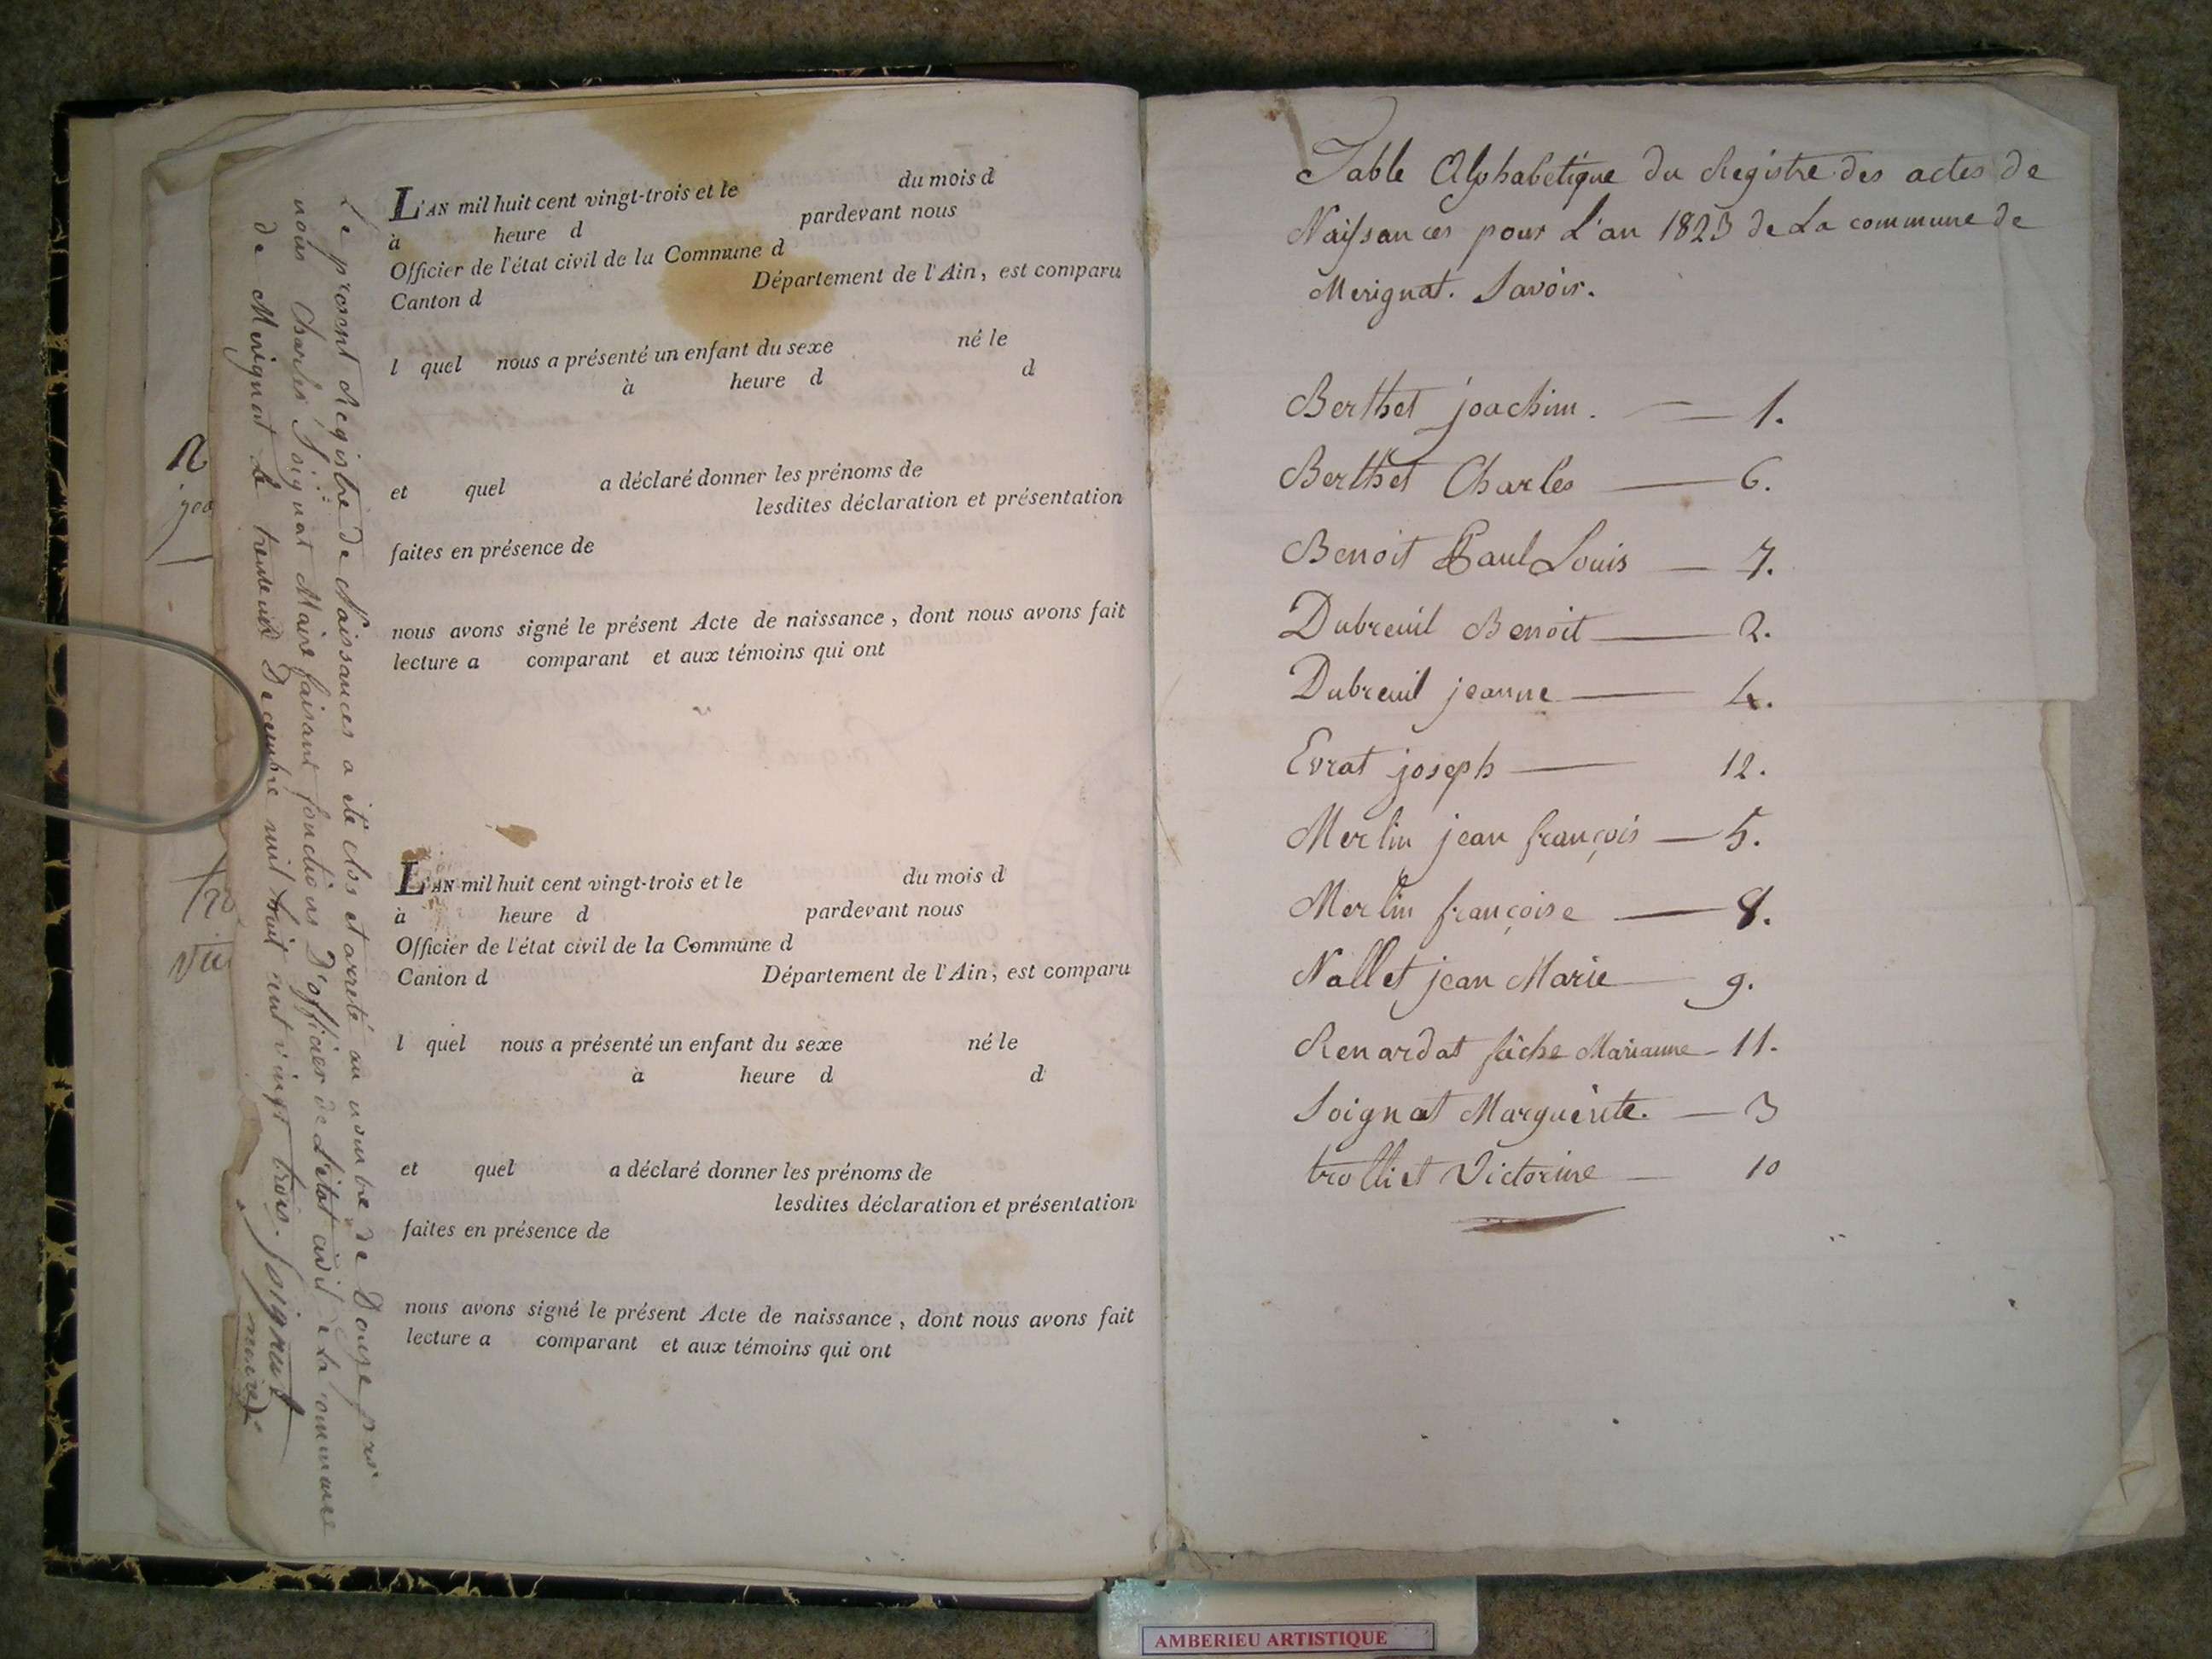 L'AN mil huit cent vingt-trois et le du mois d
à heure d pardevant nous
Officier de l'état civil de la Commune d
Canton d Département de l'Ain, est comparu
l quel nous a présenté un enfant du sexe né le
à heure d d
et quel a déclaré donner les prénoms de
lesdites déclaration et présentation
faites en présence de
nous avons signé le présent Acte de naissance, dont nous avons fait
lecture a comparant et aux témoins qui ont
L'AN mil huit cent vingt-trois et le du mois d
à heure d pardevant nous
Officier de l'état civil de la Commune d
Canton d Département de l'Ain, est comparu
l quel nous a présenté un enfant du sexe né le
à heure d d
et quel a déclaré donner les prénoms de
lesdites déclaration et présentation
faites en présence de
nous avons signé le présent Acte de naissance, dont nous avons fait
lecture a comparant et aux témoins qui ont
Le présent Registre de Naissances a été clos et arreté au nombre de Douze par
nous Charles Soignat Maire faisant fonctions D'officier de L'état civil de La commune
de Merignat Le trente un Decembre mil huit cent vingt trois. Soignat
maire
Table Alphabetique du Registre des actes de
Naissances pour L'an 1823 de La commune de
Merignat. Savoir.
Berthet joachim. — 1.
Berthet Charles — 6.
Benoit Paul Louis — 7.
Dubreuil Benoit — 2.
Dubreuil jeanne — 4.
Evrat joseph — 12.
Merlin jean françois — 5.
Merlin françoise — 8.
Nallet jean Marie — 9.
Renardat fâche Marianne - 11.
Soignat Marguerite. — 3
trolliet Victorine — 10
AMBERIEU ARTISTIQUE